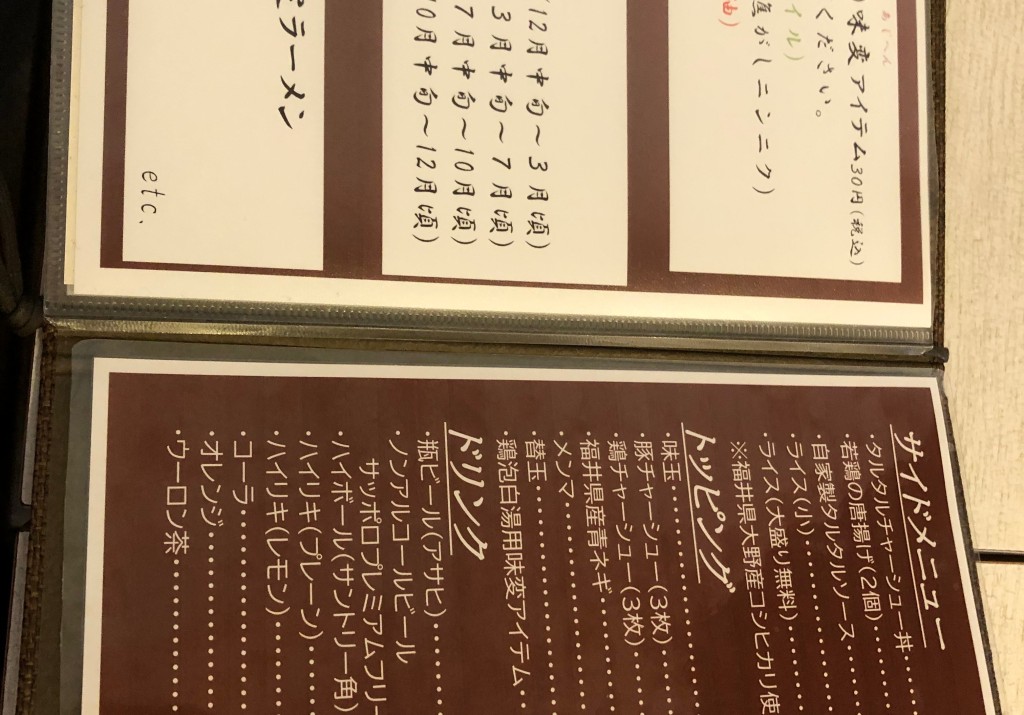 あじへん
味変アイテム30円(税込)
ください。
イル)
焦がしニンニク)
油)
12月中旬〜3月頃)
3月中旬〜7月頃)
7月中旬〜10月頃)
10月中旬〜12月頃)
ラーメン
etc.
サイドメニュー
・タルタルチャーシュー丼
・若鶏の唐揚げ(2個)
・自家製タルタルソース
・ライス(小)
・ライス(大盛り無料)
※福井県大野産コシヒカリ使
トッピング
・味玉
・豚チャーシュー(3枚)
・鶏チャーシュー(3枚)
・福井県産青ネギ
・メンマ
・替玉
・鶏泡白湯用味変アイテム
ドリンク
・瓶ビール(アサヒ)
・ノンアルコールビール
サッポロプレミアムフリー
・ハイボール(サントリー角)
・ハイリキ(プレーン)
・ハイリキ(レモン)
・コーラ
・オレンジ
・ウーロン茶